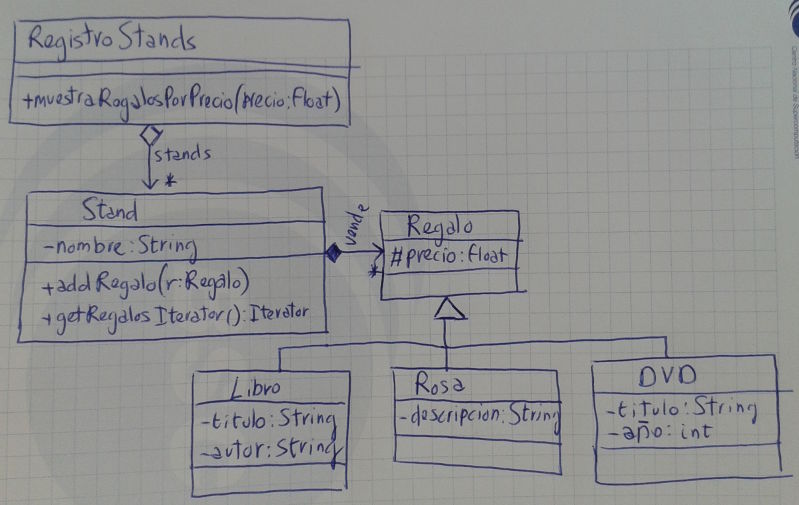 RegistroStands
+muestraRegalosPorPrecio(precio:Float)
stands
*
Stand
-nombre:String
+addRegalo(r:Regalo)
+getRegalosIterator():Iterator
vende
*
Regalo
#precio:float
Libro
-titulo:String
-autor:String
Rosa
-descripcion:String
DVD
-titulo:String
-año:int
Centro Nacional de Supercomputación